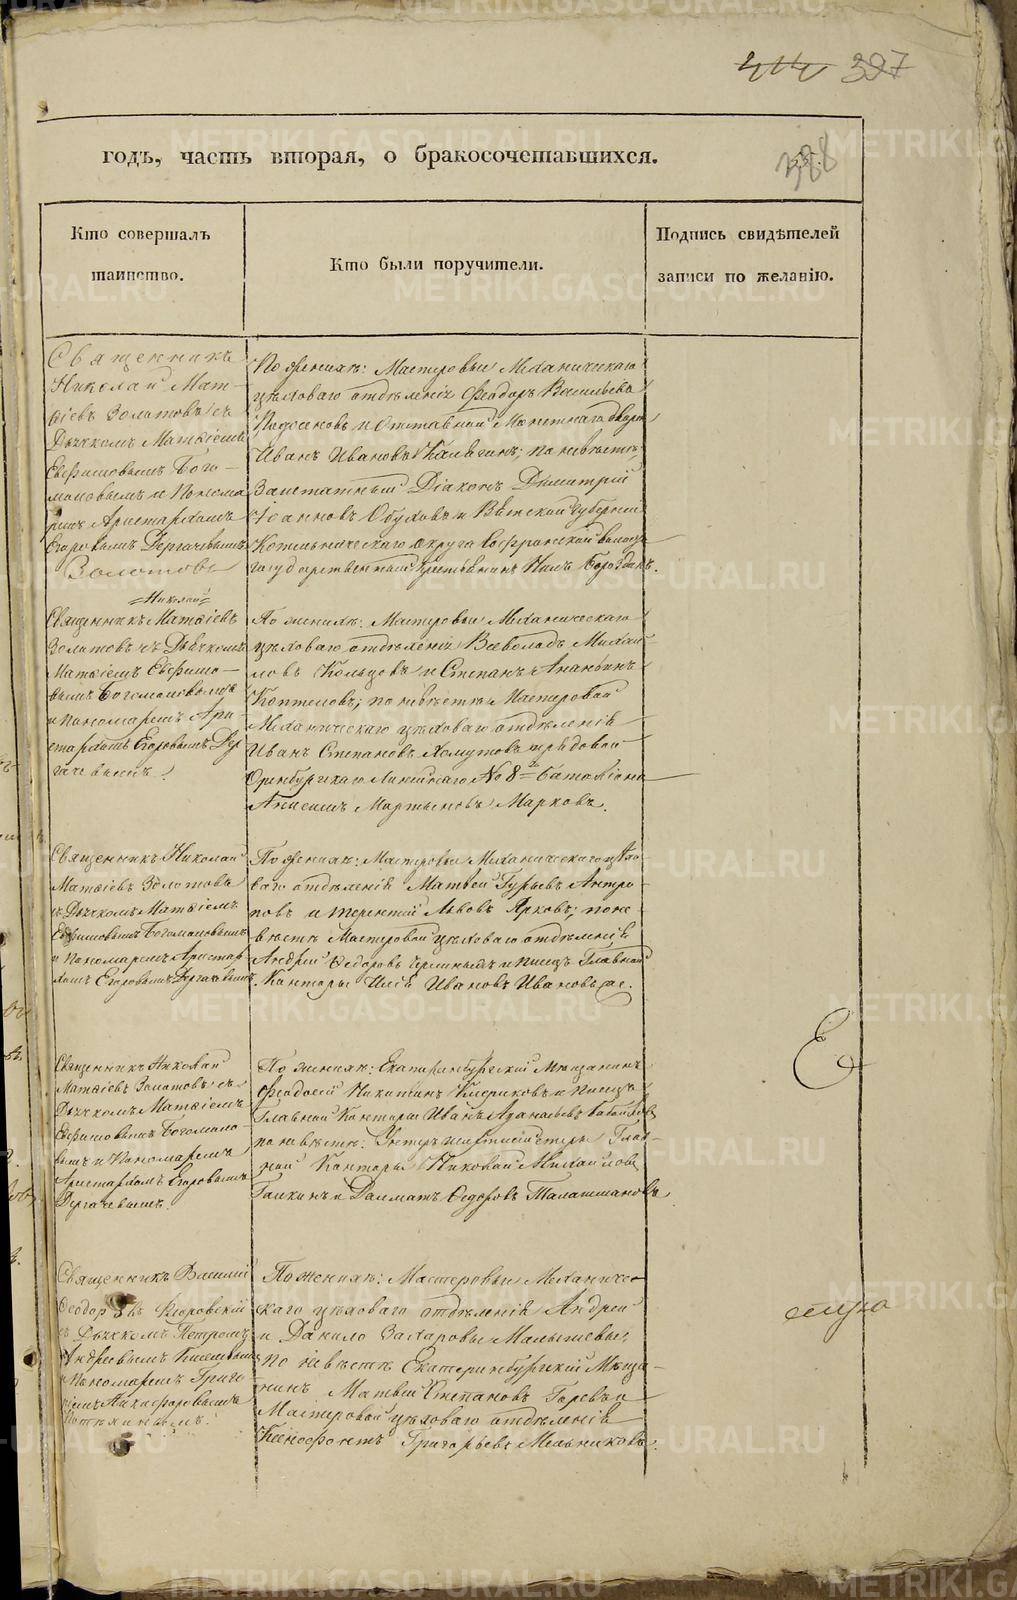 397
годъ, часть вторая, о бракосочетавшихся.
388
Кто совершалъ
таинство.
Кто были поручители.
Подпись свидѣтелей
записи по желанію.
Священникъ
Николай Мат-
ѳіевъ Золотовъ съ
Дьячкомъ Матѳіемъ
Евфимовымъ Бого-
моловымъ и Понома
ремъ Аристархомъ
Егоровымъ Дергачевымъ
Золотовъ
По женихѣ: Мастеровые Механическаго
цѣховаго отдѣленія Феодоръ Васильевъ
и Отставной Монетнаго двора
Иванъ Ивановъ; по невѣстѣ:
Заштатный Діаконъ Димитрій
Іоанновъ Обуховъ и Вятской Губерніи
Котельническаго округа волости
государственный крестьянинъ
Николай
Священникъ Матѳіевъ
Золотовъ съ Дьячкомъ
Матѳіемъ Евфимо-
вымъ Богомоловымъ
и Пономаремъ Ари-
стархомъ Егоровымъ Дер
гачевымъ.
По женихѣ: Мастеровые Механическаго
цѣховаго отдѣленія Всеволодъ Михаи-
ловъ Кольцовъ и Степанъ Ананьинъ
Коптеловъ; по невѣстѣ Мастеровой
Механическаго цѣховаго отдѣленія
Иванъ Степановъ Хомутовъ и рядовой
Оренбургскаго Линейнаго № 8 баталіона
Анисимъ Мартыновъ Марковъ.
Священникъ Николай
Матѳіевъ Золотовъ
съ Дьячкомъ Матѳіемъ
Евфимовымъ Богомоловымъ
и Пономаремъ Аристар
хомъ Егоровымъ Дергачевымъ.
По женихѣ: Мастеровые Механическаго цѣхо-
ваго отдѣленія Матвей Гурьевъ Антро-
повъ и Терентій Львовъ Ярковъ; по не-
вѣстѣ Мастеровой цѣховаго отдѣленія
Андрей Федоровъ и писецъ Главной
Конторы Илья Ивановъ Ивановъ
Священникъ Николай
Матѳіевъ Золотовъ съ
Дьячкомъ Матѳіемъ
Евфимовымъ Богомоло-
вымъ и Пономаремъ
Аристархомъ Егоровымъ
Дергачевымъ.
По женихѣ: Екатеринбургскій Мѣщанинъ
Феодосій Никитинъ и писецъ
Главной Конторы Иванъ Аѳанасьевъ
по невѣстѣ: Унтеръ шихтмейстеры Глав-
ной Конторы Николай Михайловъ
и Далматъ Федоровъ
Священникъ Василій
Феодор
съ Дьячкомъ Петромъ
Андреевымъ
и Пономаремъ Григо-
ріемъ Никифоровымъ
По женихѣ: Мастеровые Механиче-
скаго цѣховаго отдѣленія Андрей
и Данило Захаровы Малышевы,
по невѣстѣ Екатеринбургскій Мѣща-
нинъ Матвей Степановъ
Мастеровой цѣховаго отдѣленія
Ксенофонтъ Григорьевъ Мельниковъ.